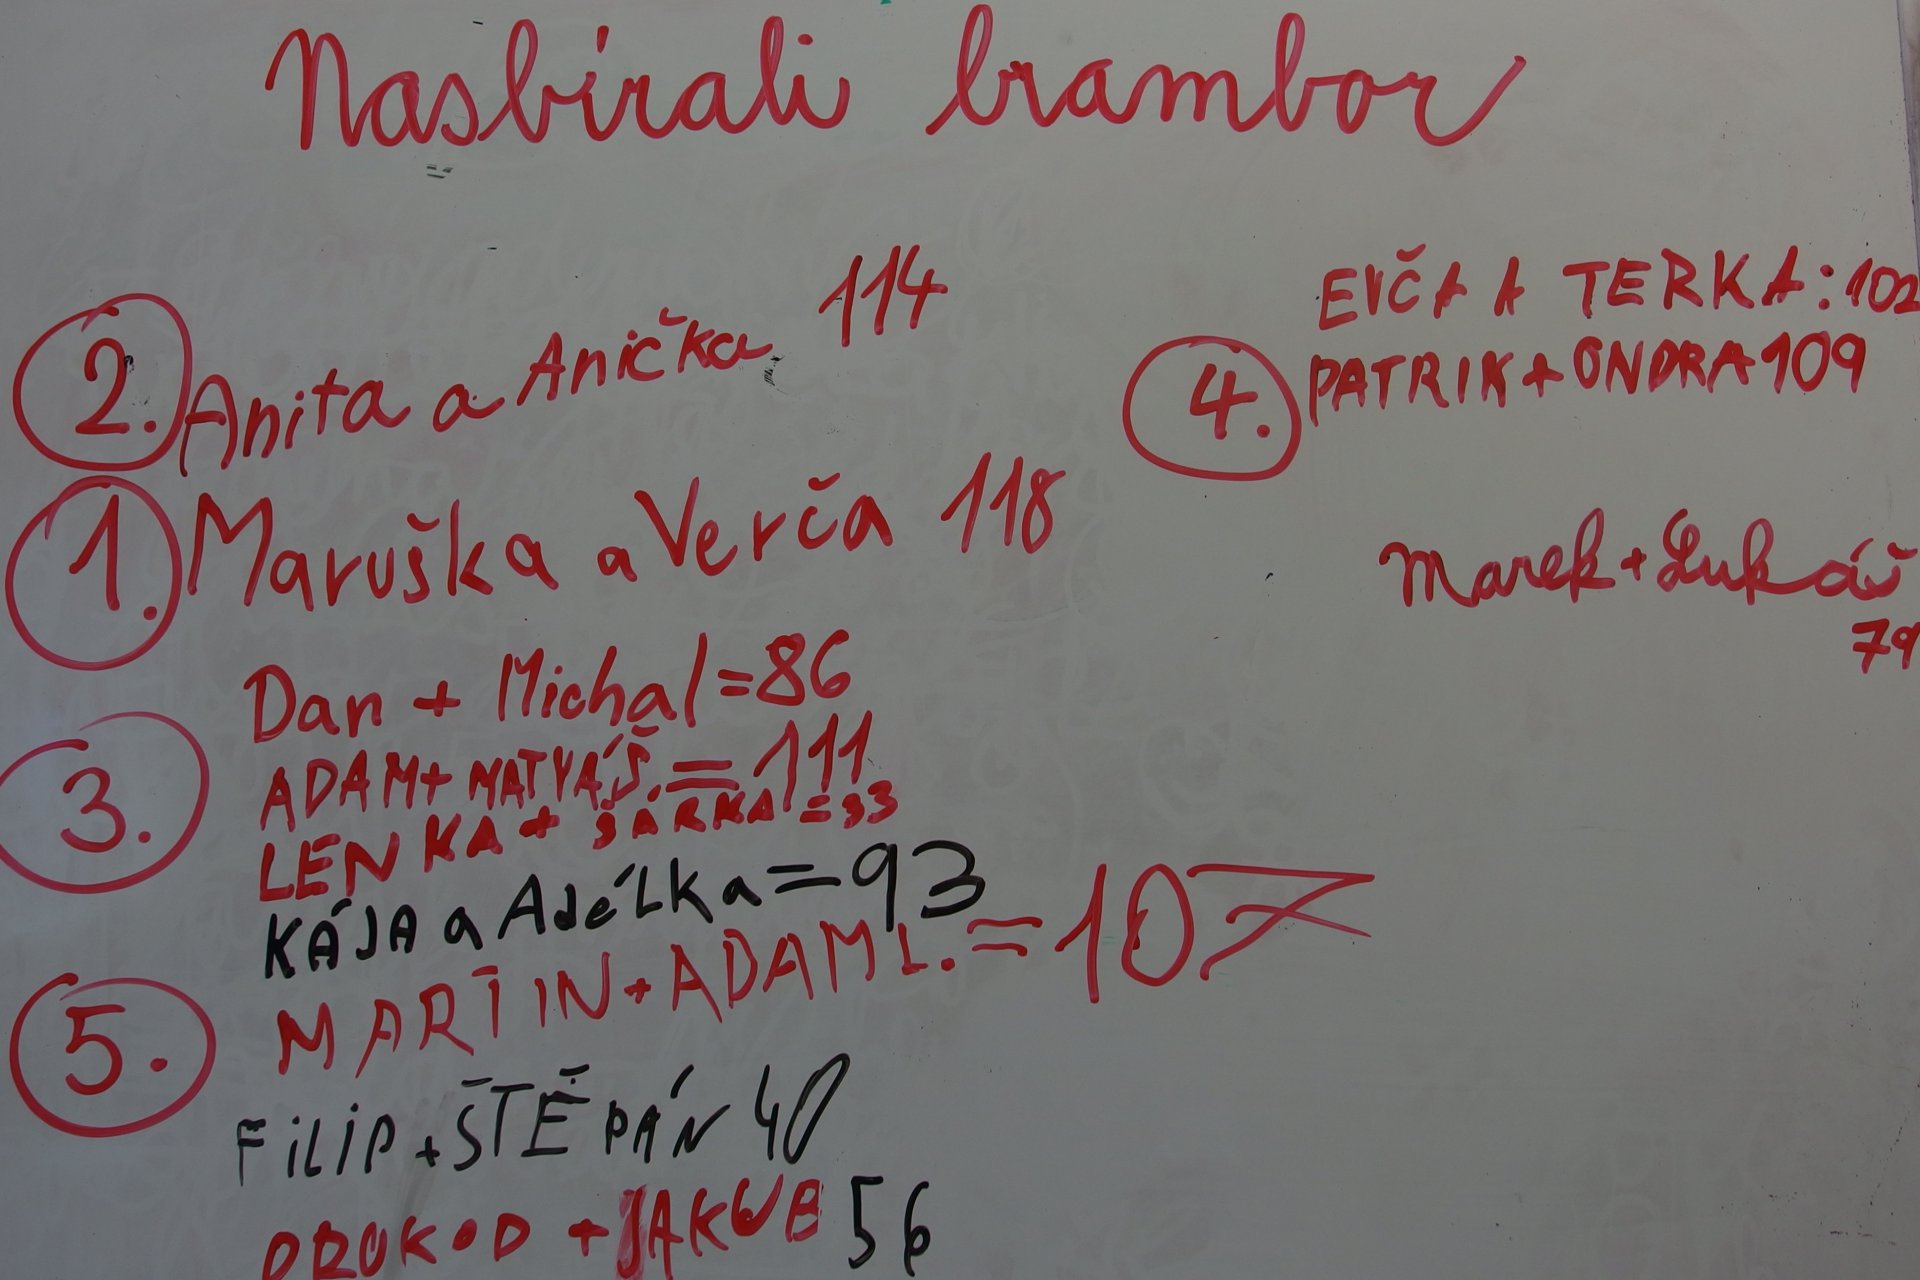 Nasbírali brambor
2. Anita a Anička 114
1. Maruška a Verča 118
Dan + Michal=86
3. ADAM+MATYÁŠ.=111
LENKA+ŠÁRKA=33
KÁJA a Adélka=93
5. MARTIN+ADAM L.=107
FILIP+ŠTĚPÁN 40
PROKOP+JAKUB 56
EVČA A TERKA:102
4. PATRIK+ONDRA 109
Marek+Lukáš
79